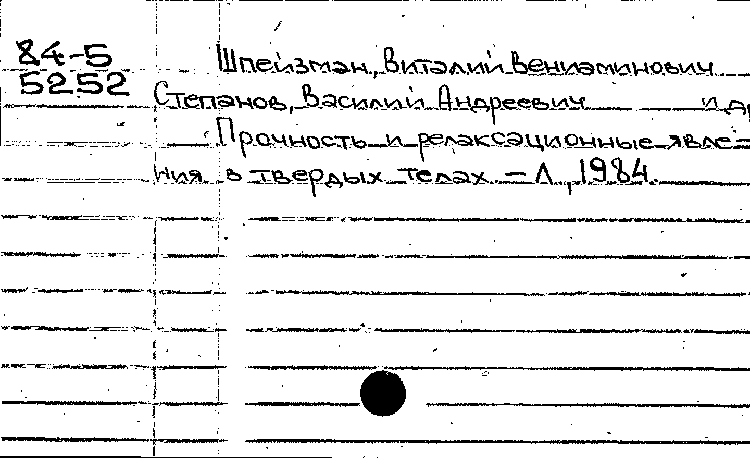 84-5
5252
Шпейзман, Виталий Вениаминович
Степанов, Василий Андреевич и др
Прочность и релаксационные явле-
ния в твердых телах – Л, 1984.